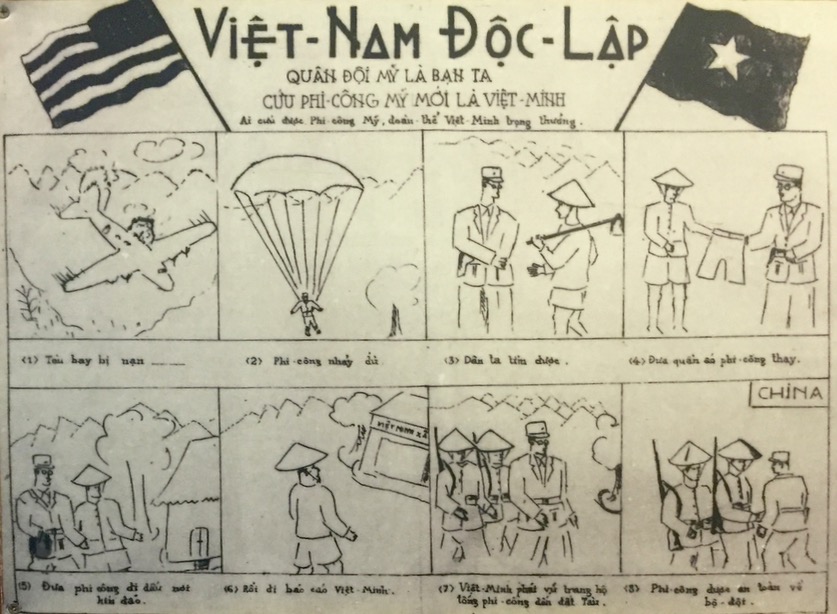 VIỆT-NAM ĐỘC-LẬP
QUÂN ĐỘI MỸ LÀ BẠN TA
CỨU PHI-CÔNG MỸ MỚI LÀ VIỆT-MINH
Ai cứu được Phi công Mỹ, đoàn-thể Việt-Minh trọng thưởng.
(1) Tàu bay bị nạn
(2) Phi-công nhảy dù
(3) Dân ta tìm được.
(4) Đưa quần áo phi-công thay.
CHINA
VIỆT MINH XÃ
(5) Đưa phi công đi dấu nơi
kín đáo.
(6) Rồi đi báo cáo Việt-Minh.
(7) Việt-Minh phái võ trang hộ
tống phi-công đến đất Tàu.
(8) Phi-công được an toàn về
bộ-đội.